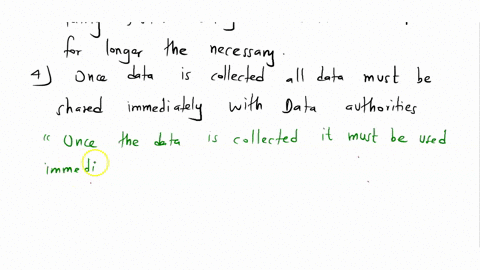 for longer the necessary.
4) Once data is collected all data must be
shared immediately with Data authorities
" Once the data is collected it must be used
immedi